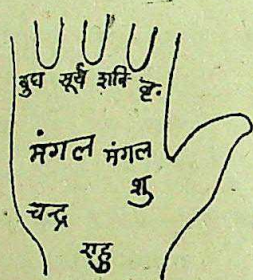 बुध सूर्य शनि बृ.
मंगल मंगल
शु
चन्द्र
राहु